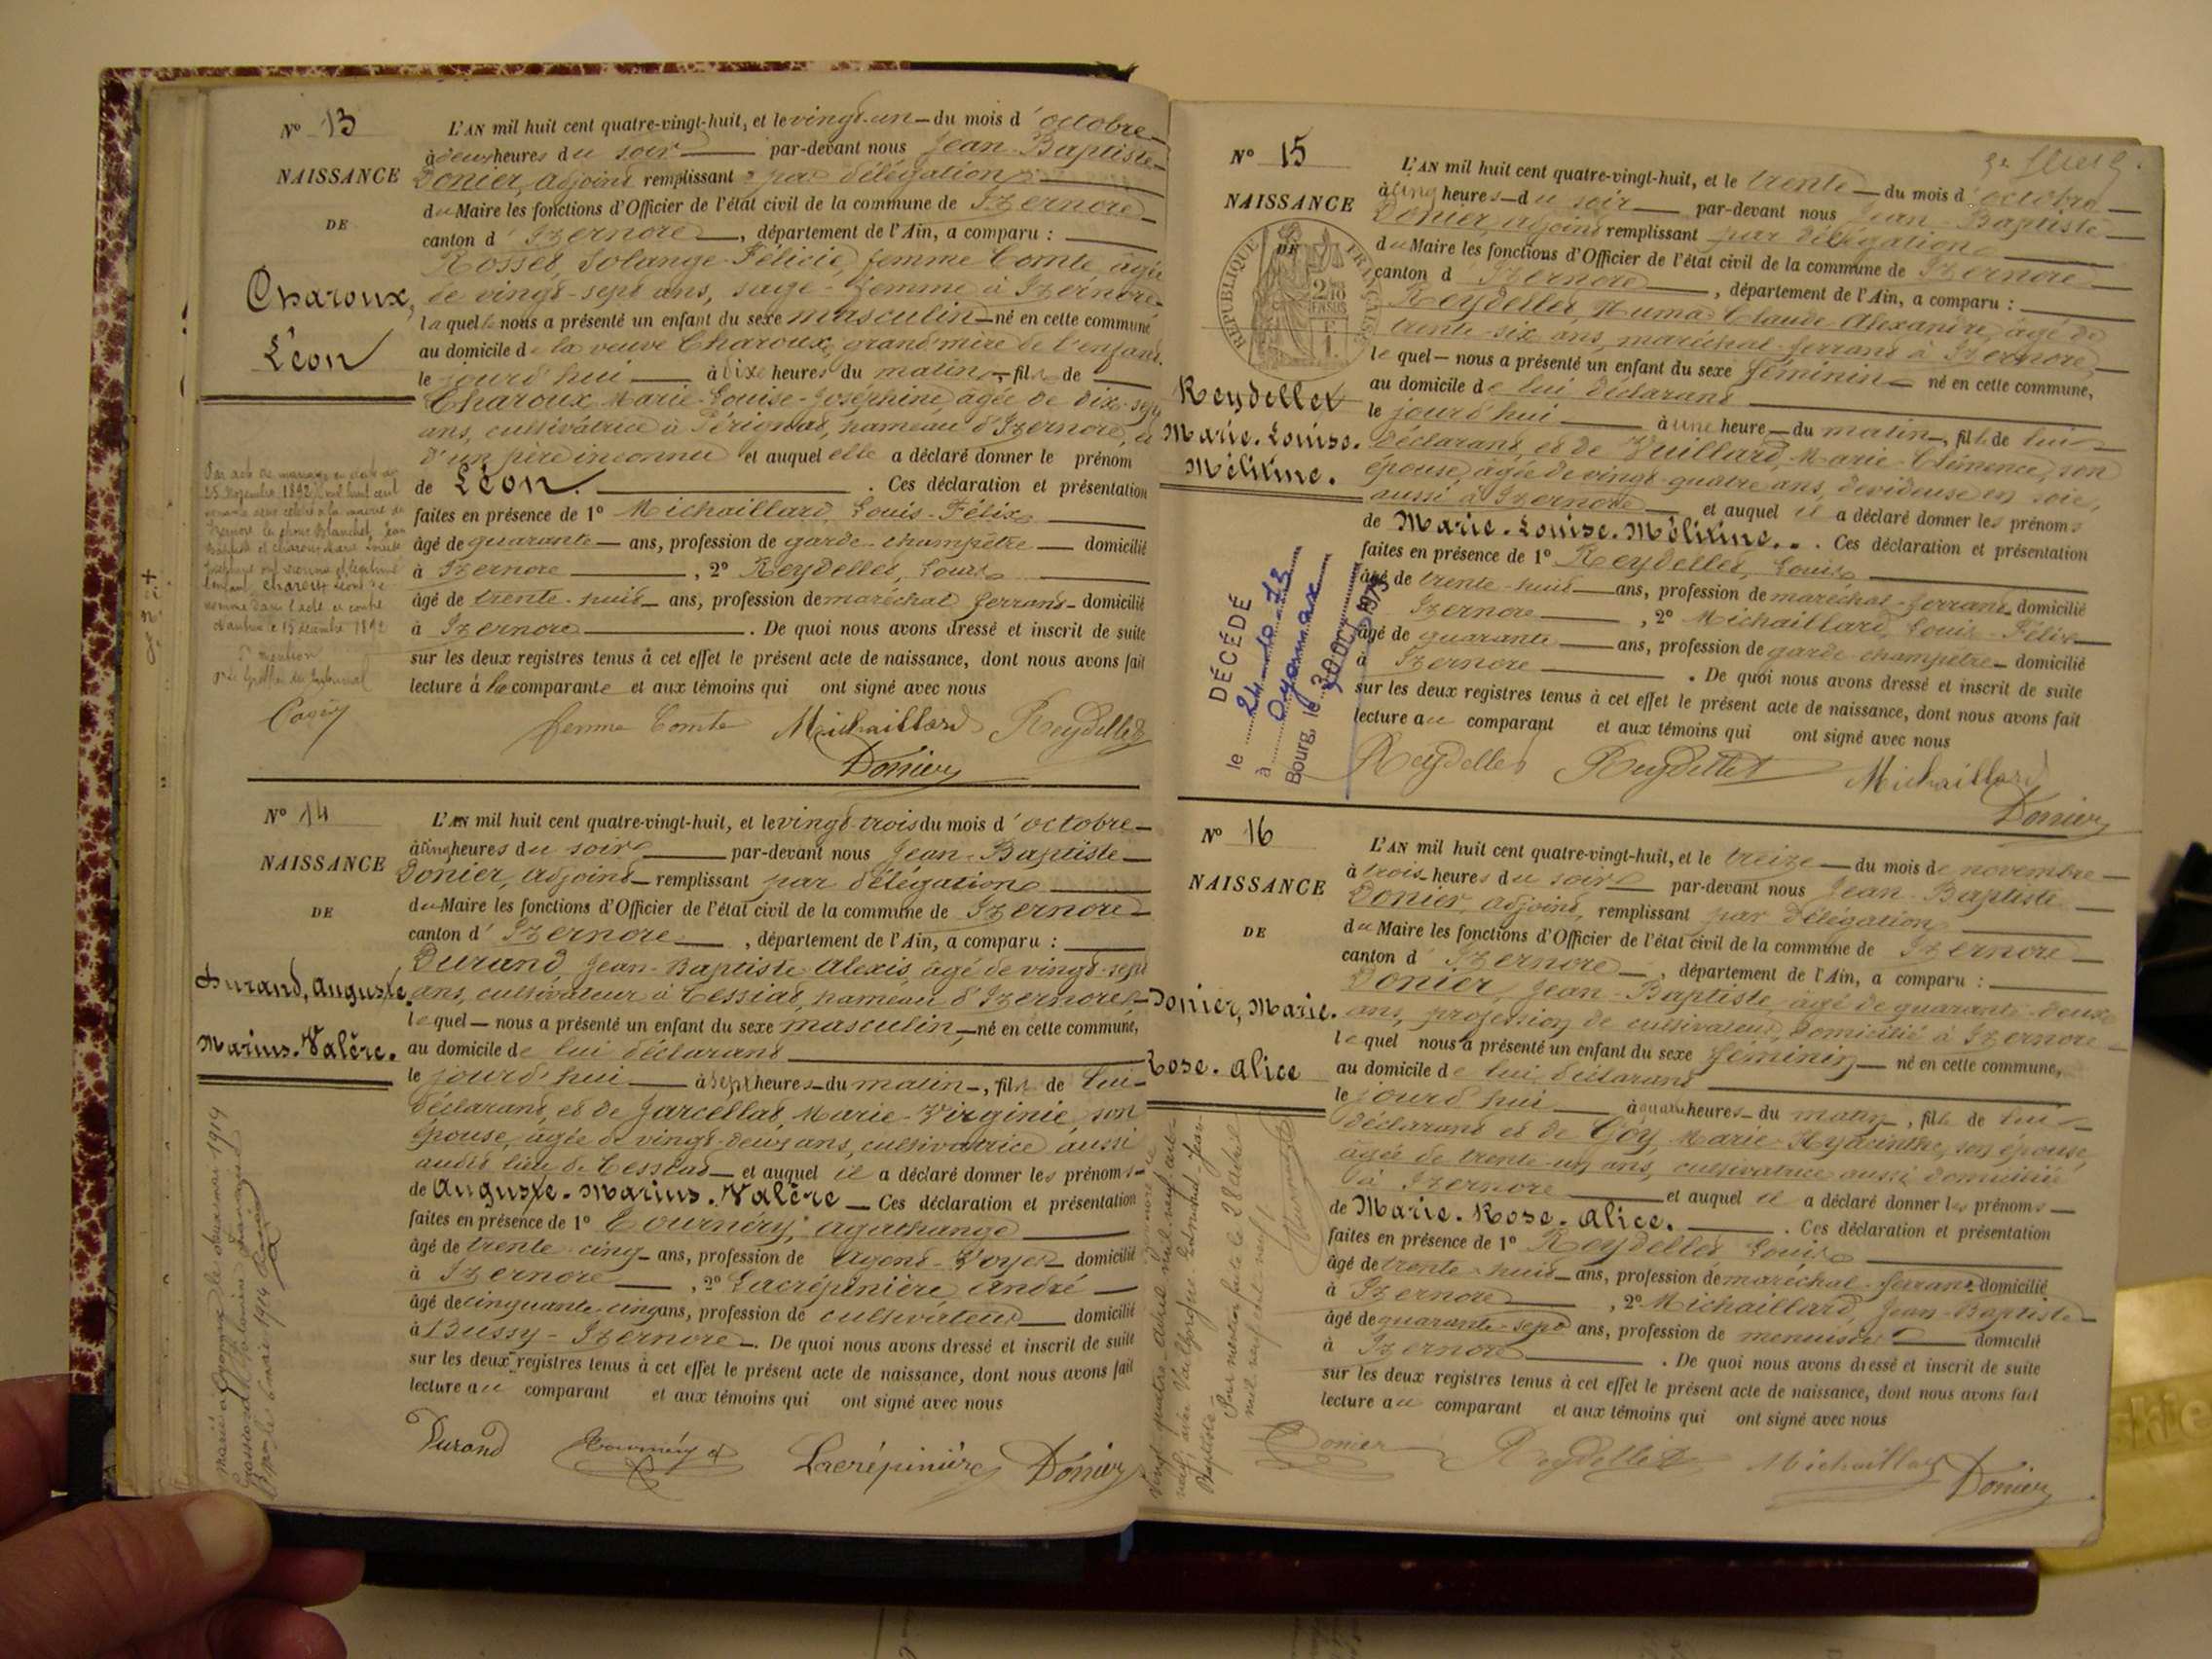 N° 13
NAISSANCE
DE
Charoux,
Léon
L'AN mil huit cent quatre-vingt-huit, et le vingt-un du mois d'octobre
à deux heures du soir par-devant nous Jean-Baptiste
Donier, adjoint remplissant par délégation
du Maire les fonctions d'Officier de l'état civil de la commune de Izernore
canton d'Izernore, département de l'Ain, a comparu :
Rosset, Solange-Félicie, femme Comte, âgée
de vingt-sept ans, sage-femme à Izernore
laquelle nous a présenté un enfant du sexe masculin né en cette commune
au domicile de la veuve Charoux, grand'mère de l'enfant.
le jourd'hui à dix heures du matin, fils de
Charoux, Marie-Louise-Joséphine, âgée de dix-sept
ans, cultivatrice à Pérignat, hameau d'Izernore, et
d'un père inconnu et auquel elle a déclaré donner le prénom
de Léon. Ces déclaration et présentation
faites en présence de 1° Michaillard, Louis-Félix
âgé de quarante ans, profession de garde-champêtre domicilié
à Izernore, 2° Reydellet, Louis
âgé de trente-huit ans, profession de maréchal ferrant domicilié
à Izernore. De quoi nous avons dressé et inscrit de suite
sur les deux registres tenus à cet effet le présent acte de naissance, dont nous avons fait
lecture à la comparante et aux témoins qui ont signé avec nous
femme Comte Michaillard Reydellet
Donier
Par acte de mariage en date du
25 Novembre 1892
Izernore
Blanchet, Jean
Baptiste et Charoux Marie Louise
Joséphine ont reconnu et légitimé
l'enfant Charoux Léon
dans l'acte ci contre
1892
P. mention
N° 14
NAISSANCE
DE
Durand, Auguste.
Marius. Valère.
L'AN mil huit cent quatre-vingt-huit, et le vingt-trois du mois d'octobre
à cinq heures du soir par-devant nous Jean-Baptiste
Donier, adjoint remplissant par délégation
du Maire les fonctions d'Officier de l'état civil de la commune de Izernore
canton d'Izernore, département de l'Ain, a comparu :
Durand, Jean-Baptiste Alexis, âgé de vingt-sept
ans, cultivateur à Tessiat, hameau d'Izernore,
lequel nous a présenté un enfant du sexe masculin, né en cette commune,
au domicile de lui déclarant
le jourd'hui à sept heures du matin, fils de lui
déclarant, et de Jarcellat, Marie-Virginie, son
épouse, âgée de vingt-deux ans, cultivatrice aussi
audit lieu de Tessiat et auquel il a déclaré donner les prénoms
de Auguste. Marius. Valère Ces déclaration et présentation
faites en présence de 1° Tournéry, Agathange
âgé de trente-cinq ans, profession de Agent-Voyer domicilié
à Izernore, 2° Lacrépinière André
âgé de cinquante-cinq ans, profession de cultivateur domicilié
à Bussy-Izernore. De quoi nous avons dressé et inscrit de suite
sur les deux registres tenus à cet effet le présent acte de naissance, dont nous avons fait
lecture au comparant et aux témoins qui ont signé avec nous
Durand Tournéry Lacrépinière Donier
marié à Oyonnax le deux mai 1914
N° 15
NAISSANCE
DE
REPUBLIQUE FRANÇAISE
Reydellet
Marie. Louise.
Mélitine.
L'AN mil huit cent quatre-vingt-huit, et le trente du mois d'octobre
à cinq heures du soir par-devant nous Jean-Baptiste
Donier, adjoint remplissant par délégation
du Maire les fonctions d'Officier de l'état civil de la commune de Izernore
canton d'Izernore, département de l'Ain, a comparu :
Reydellet, Numa Claude-Alexandre, âgé de
trente-six ans, maréchal-ferrant à Izernore,
lequel nous a présenté un enfant du sexe féminin né en cette commune,
au domicile de lui déclarant
le jourd'hui à une heure du matin, fille de lui
déclarant, et de Vuillard, Marie-Clémence, son
épouse, âgée de vingt-quatre ans, dévideuse en soie,
aussi à Izernore et auquel il a déclaré donner les prénoms
de Marie. Louise. Mélitine. Ces déclaration et présentation
faites en présence de 1° Reydellet, Louis
âgé de trente-huit ans, profession de maréchal-ferrant domicilié
Izernore, 2° Michaillard, Louis-Félix
âgé de quarante ans, profession de garde-champêtre domicilié
à Izernore. De quoi nous avons dressé et inscrit de suite
sur les deux registres tenus à cet effet le présent acte de naissance, dont nous avons fait
lecture au comparant et aux témoins qui ont signé avec nous
Reydellet Reydellet Michaillard
Donier
DÉCÉDÉ
le 24.10.73
à Oyonnax
Bourg, le 30 OCT 1973
N° 16
NAISSANCE
DE
Donier, Marie.
Rose. Alice
L'AN mil huit cent quatre-vingt-huit, et le treize du mois de novembre
à trois heures du soir par-devant nous Jean-Baptiste
Donier, adjoint, remplissant par délégation
du Maire les fonctions d'Officier de l'état civil de la commune de Izernore
canton d'Izernore, département de l'Ain, a comparu :
Donier, Jean-Baptiste, âgé de quarante-deux
ans, profession de cultivateur, domicilié à Izernore
lequel nous a présenté un enfant du sexe féminin né en cette commune,
au domicile de lui déclarant
le jourd'hui à quatre heures du matin, fille de lui
déclarant et de Goy, Marie-Hyacinthe, son épouse,
âgée de trente-un ans, cultivatrice aussi domiciliée
à Izernore et auquel il a déclaré donner les prénoms
de Marie. Rose. Alice. Ces déclaration et présentation
faites en présence de 1° Reydellet, Louis
âgé de trente-huit ans, profession de maréchal-ferrant domicilié
à Izernore, 2° Michaillard, Jean-Baptiste
âgé de quarante-sept ans, profession de menuisier domicilié
à Izernore. De quoi nous avons dressé et inscrit de suite
sur les deux registres tenus à cet effet le présent acte de naissance, dont nous avons fait
lecture au comparant et aux témoins qui ont signé avec nous
Donier Reydellet Michaillard Donier
Baptiste
Pour mention faite le 28 avril
mil neuf cent neuf